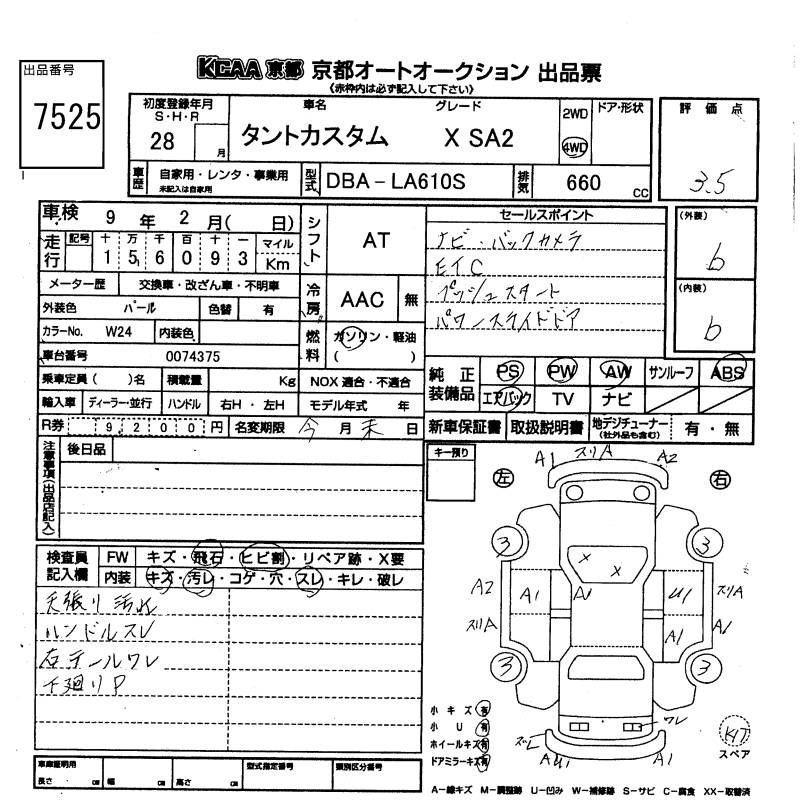 出品番号
7525
KCAA 京都 京都オートオークション 出品票
《赤枠内は必ず記入して下さい》
初度登録年月
S・H・R
28 月
車名 グレード
タントカスタム X SA2
2WD
4WD
ドア・形状
評価点
3.5
車歴
自家用・レンタ・事業用
未記入は自家用
型式 DBA-LA610S
排気 660 CC
車検 9 年 2 月( 日)
走行 記号 十 万 千 百 十 一 マイル
1 5 6 0 9 3 Km
シフト AT
セールスポイント
ナビ・バックカメラ
ETC
プッシュスタート
パワースライドドア
(外装)
b
(内装)
b
メーター歴 交換車・改ざん車・不明車
外装色 パール 色替 有
冷房 AAC 無
カラーNo. W24 内装色
燃料 ガソリン・軽油
( )
車台番号 0074375
乗車定員( )名 積載量 Kg NOX適合・不適合
輸入車 ディーラー・並行 ハンドル 右H・左H モデル年式 年
純正装備品 PS PW AW サンルーフ ABS
エアバック TV ナビ
R券 9,200 円 名変期限 今 月 末 日
新車保証書 取扱説明書 地デジチューナー 有・無
(社外品も含む)
注意事項(出品店記入)
後日品
キー預り
左
右
A1 スリA A2
3 3
A2 A1 A1 U1 スリA
スリA A1 A1
3 3
検査員記入欄
FW キズ・飛石・ヒビ割・リペア跡・X要
内装 キズ・汚レ・コゲ・穴・スレ・キレ・破レ
天張り汚れ
ハンドルスレ
右テールワレ
下廻りP
小キズ 有
小U 有
ホイールキズ 有
ドアミラーキズ 有
ワレ
ズレ
AU1 A1
K17
スペア
車庫証明用
長さ cm 幅 cm 高さ cm
型式指定番号
類別区分番号
A-線キズ M-調整跡 U-凹み W-補修跡 S-サビ C-腐食 XX-取替済